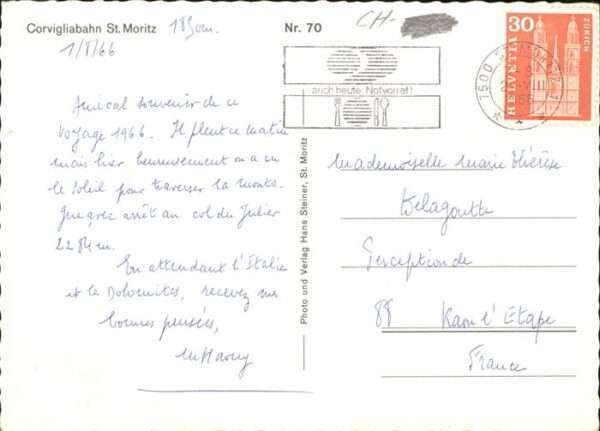 Corvigliabahn St. Moritz 1850m.
1/8/66
Amical souvenir de ce
voyage 1966. Il pleut ce matin
mais hier heureusement on a eu
le soleil pour traverser la monts.
Jusque arrêt au col du Julier
2284m.
En attendant l'Italie
et les Dolomites, recevez mes
bonnes pensées,
Nr. 70
CH-
auch heute: Notvorrat!
7500
30
HELVETIA
ZÜRICH
Photo und Verlag Hans Steiner, St. Moritz
Mademoiselle Marie Thérèse
Delagoutte
Perception de
88 Raon l'Etape
France